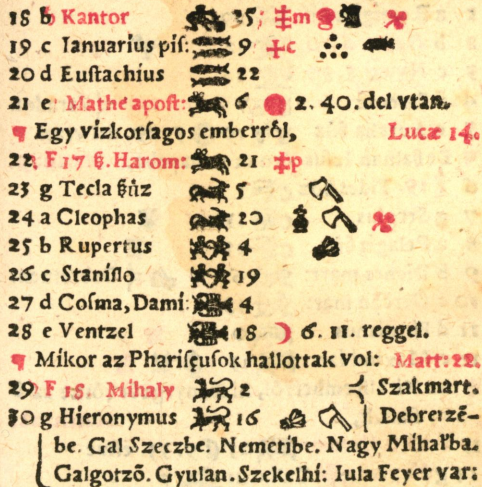 18 b Kantor 25 ‡m
19 c Ianuarius piſ: 9 ‡c
20 d Euſtachius 22
21 e Mathe apoſt: 6 2. 40. del vtan.
¶ Egy vizkorſagos emberről, Lucæ 14.
22 F 17 ß. Harom: 21 ‡p
23 g Tecla ßűz 5
24 a Cleophas 20
25 b Rupertus 4
26 c Staniſlo 19
27 d Coſma, Dami: 4
28 e Ventzel 18 ☽ 6. 11. reggel.
¶ Mikor az Phariſęuſok hallottak vol: Matt: 22.
29 F 18. Mihaly 2 Szakmart.
30 g Hieronymus 16 Debretzē-
be. Gal Szeczbe. Nemetibe. Nagy Mihalba.
Galgotzō. Gyulan. Szekelhi: Iula Feyer var: